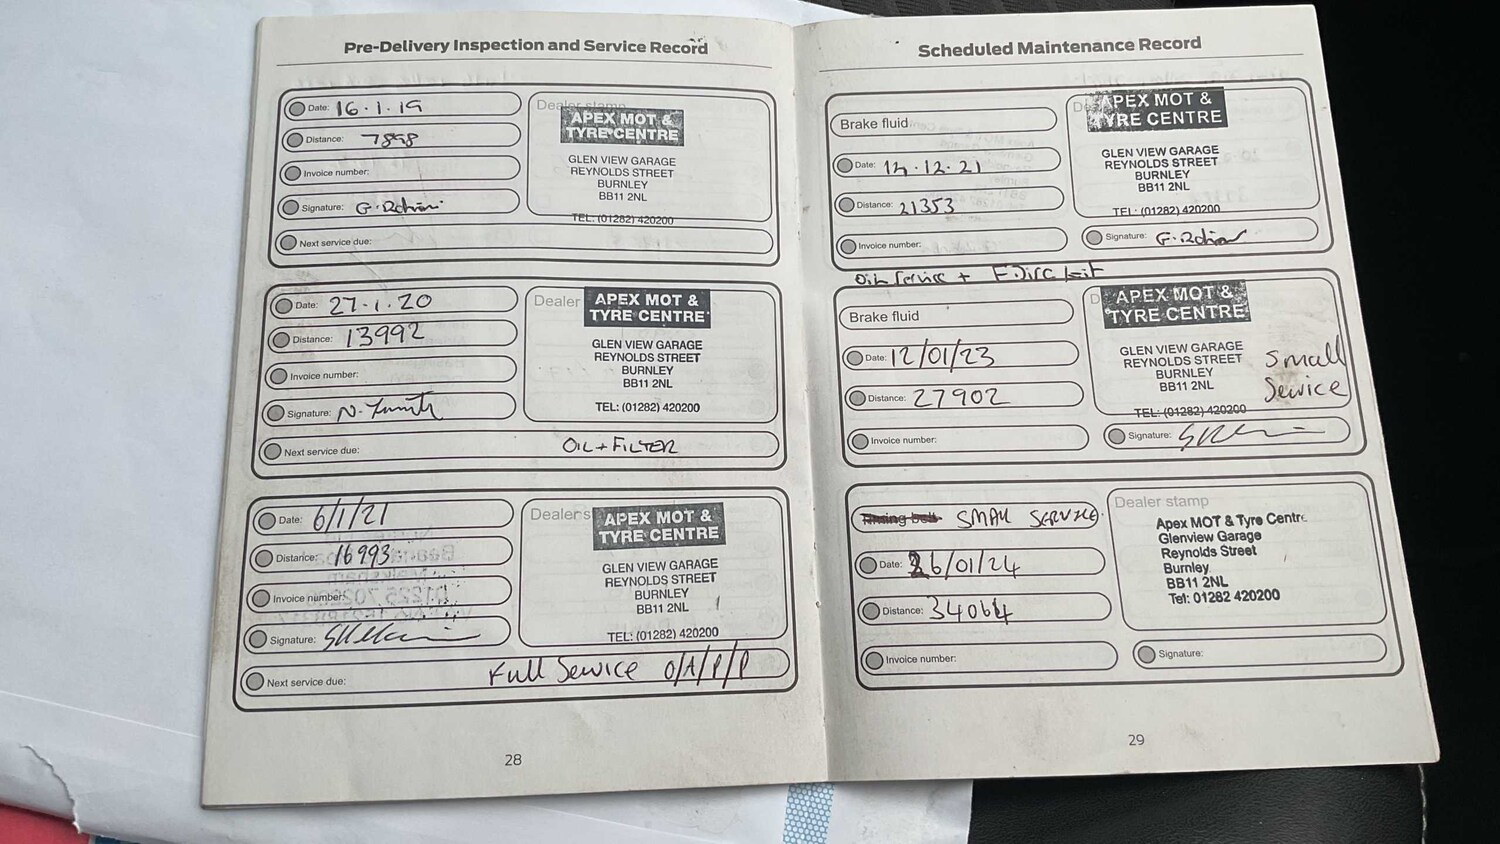 Pre-Delivery Inspection and Service Record
Date: 16.1.19
Distance: 7898
Invoice number:
Signature:
Next service due:
Dealer stamp
APEX MOT &
TYRE CENTRE
GLEN VIEW GARAGE
REYNOLDS STREET
BURNLEY
BB11 2NL
TEL: (01282) 420200
Date: 27.1.20
Distance: 13992
Invoice number:
Signature:
Next service due: OIL + FILTER
Dealer
APEX MOT &
TYRE CENTRE
GLEN VIEW GARAGE
REYNOLDS STREET
BURNLEY
BB11 2NL
TEL: (01282) 420200
Date: 6/1/21
Distance: 16993
Invoice number:
Signature:
Next service due: Full Service O/A/P/P
Dealer s
APEX MOT &
TYRE CENTRE
GLEN VIEW GARAGE
REYNOLDS STREET
BURNLEY
BB11 2NL
TEL: (01282) 420200
28
Scheduled Maintenance Record
Brake fluid
Date: 14.12.21
Distance: 21353
Invoice number:
APEX MOT &
TYRE CENTRE
GLEN VIEW GARAGE
REYNOLDS STREET
BURNLEY
BB11 2NL
TEL: (01282) 420200
Signature:
Oil Service +
Brake fluid
Date: 12/01/23
Distance: 27902
Invoice number:
APEX MOT &
TYRE CENTRE
GLEN VIEW GARAGE
REYNOLDS STREET
BURNLEY
BB11 2NL
TEL: (01282) 420200
Small
Service
Signature:
Timing belt SMALL SERVICE
Date: 26/01/24
Distance: 34064
Invoice number:
Dealer stamp
Apex MOT & Tyre Centre
Glenview Garage
Reynolds Street
Burnley
BB11 2NL
Tel: 01282 420200
Signature:
29